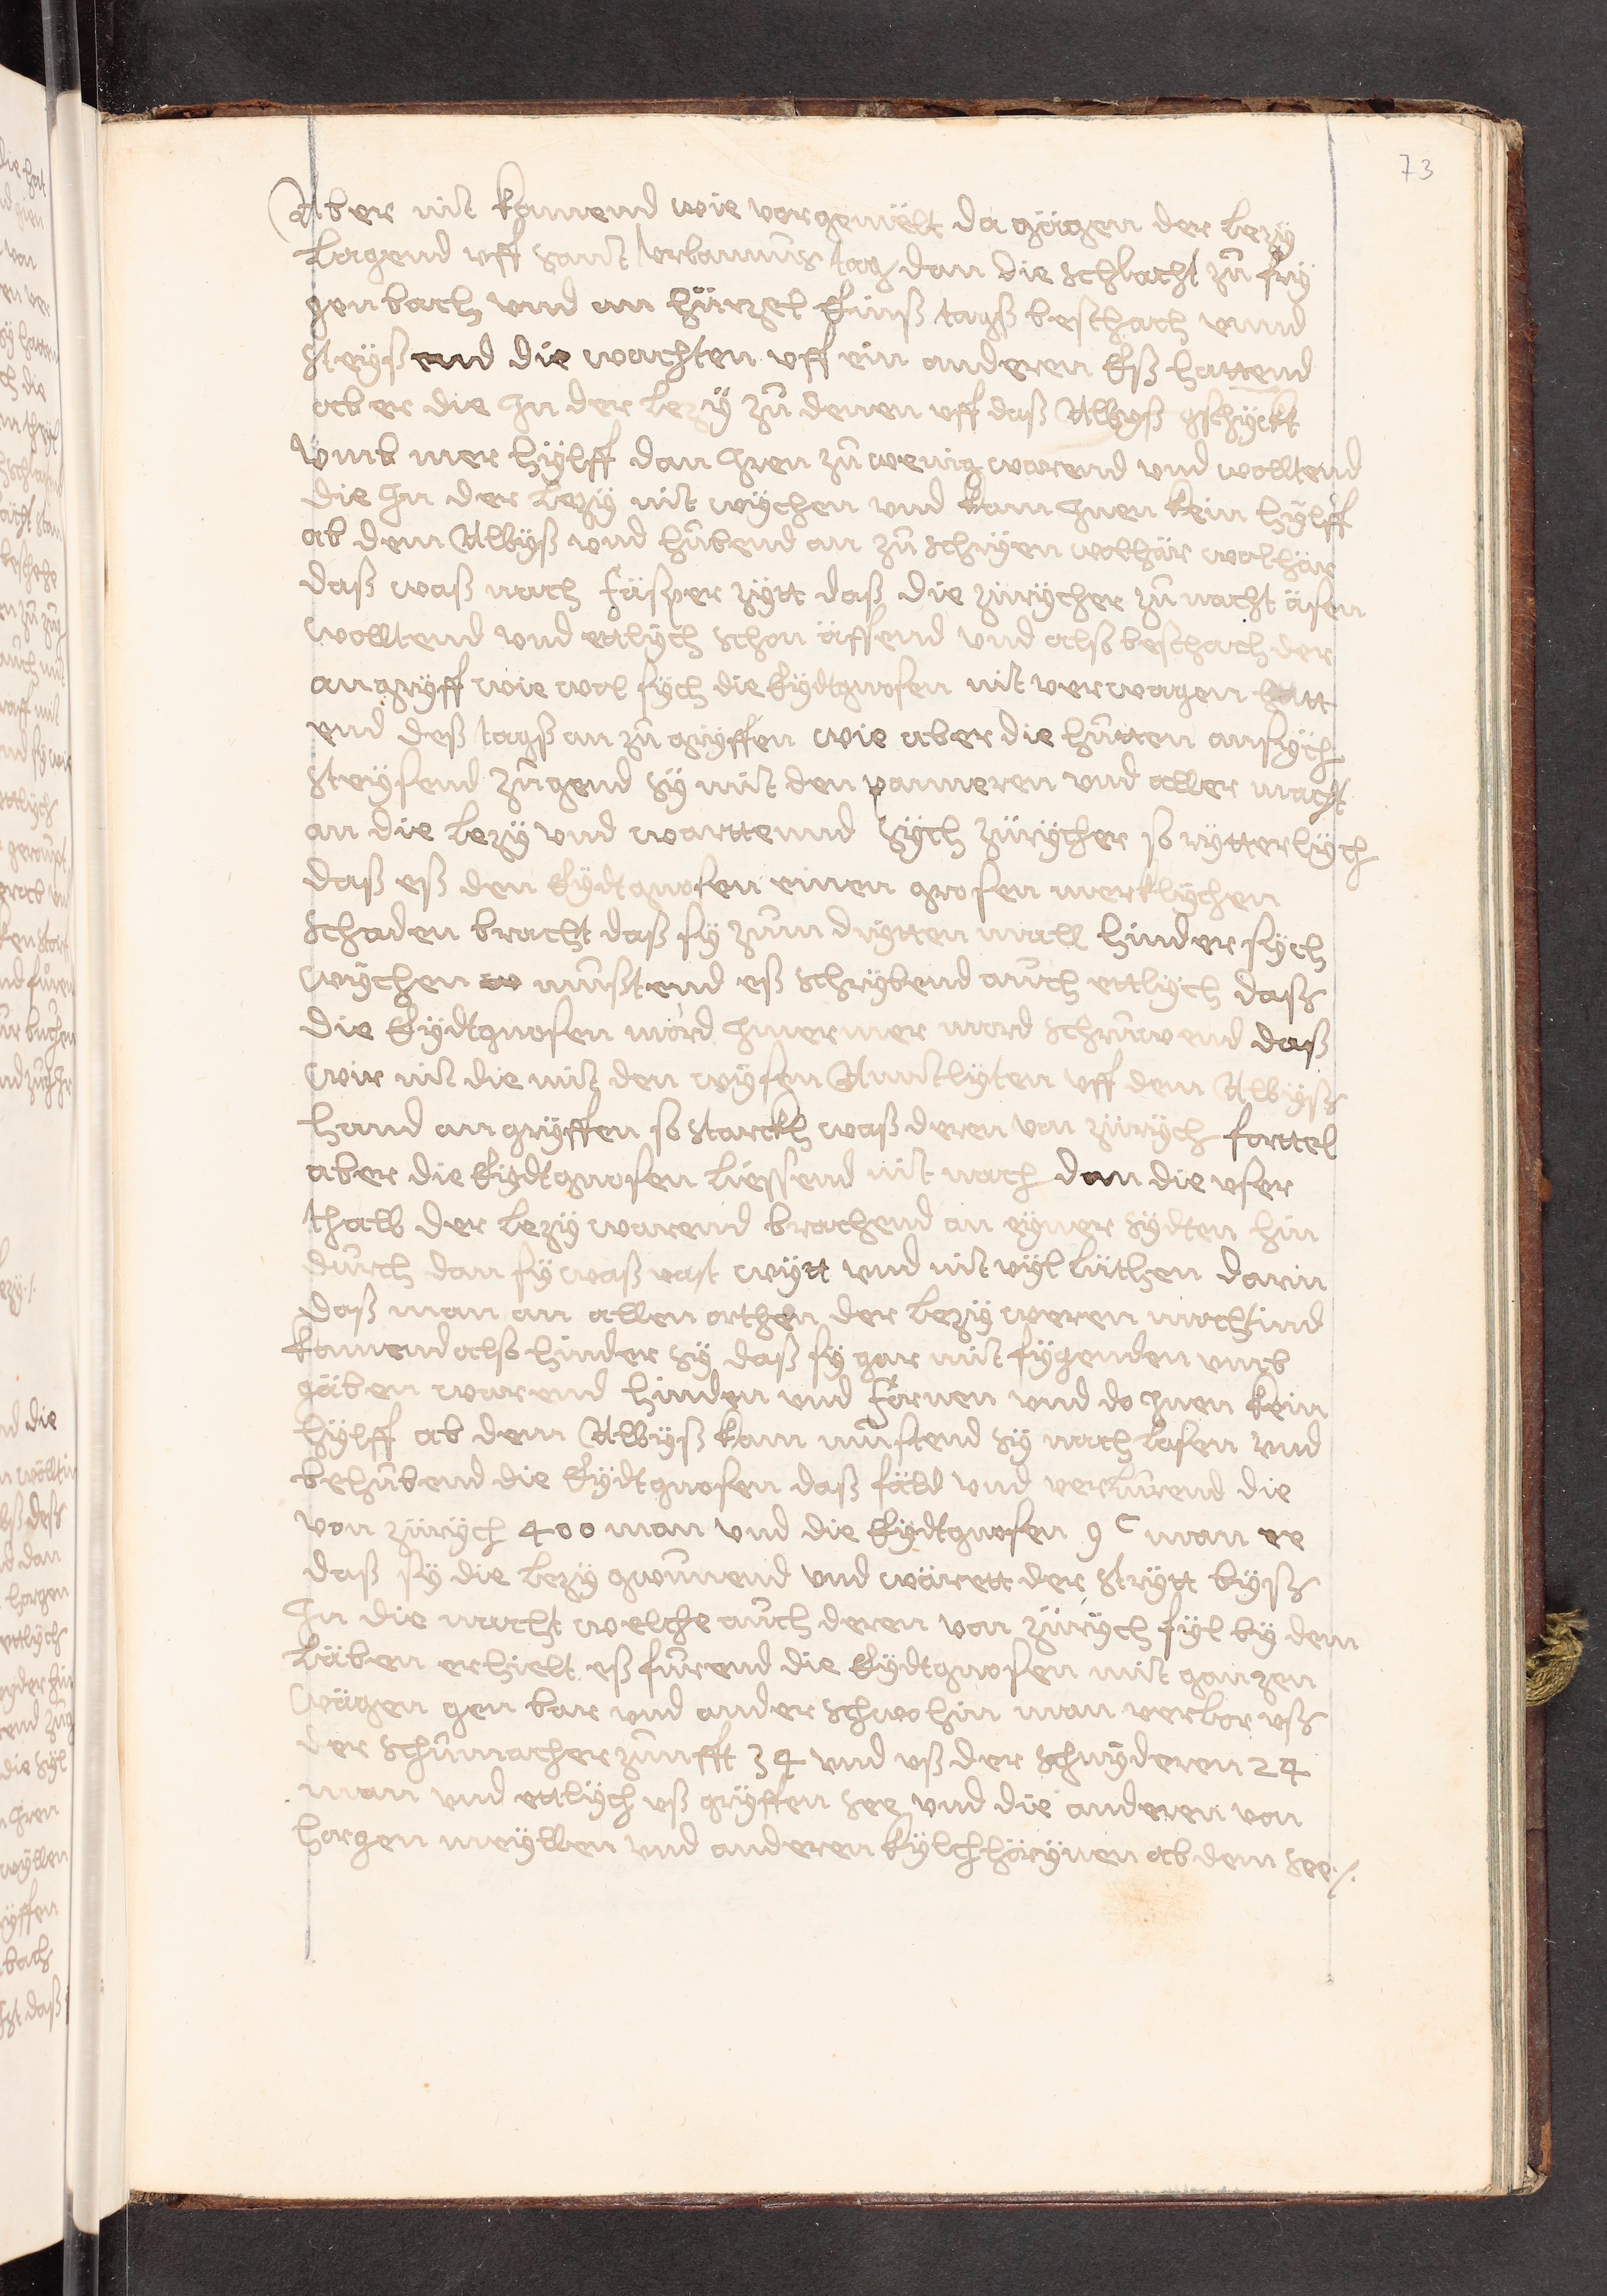 73
Aber nit kamend wie vorgemëlt da gägen der lezÿ
lagend vff sanct vrbannus tag dan die schlacht zů frÿ
gen bach vnd am hürzel Einß tagß beschach vnnd
steÿßend die wachten vff ein anderen Eß hattend
aber die Jn der lezÿ zů denen vff daß Albÿß gschÿckt
vmb mer hÿlff dan Jren zů wenig warend vnd wolltend
die Jn der lezÿ nit wÿchen vnd kam Jnen kein hÿlff
ab dem Albÿß vnd hůbend an zů schrÿen wolhär wolhär
daß waß nach fäsper zÿtt daß die zürÿcher zů nacht äsen
wolltend vnd ettlÿch schon ässend vnd alß beschach der
angrÿff wie wol sÿch die Eÿdtgnosen nit verwagen hatt
end deß tagß an zů grÿffen wie aber die hütten ansÿch
steÿsend zůgend sÿ mit den panneren vnd aller macht
an die lezÿ vnd warttennd sÿch zürÿcher so rÿtterlÿch
daß eß den Eÿdtgnosen einen grosen merklÿchen
schaden bracht daß sÿ zům drÿtten mall hinder sÿch
wÿchen můßtend eß schrÿbend aůch ettlÿch daß
die Eÿdtgnosen mord Jmermer mord schrůwend daß
wir nit die mit den wÿsen Ammtlÿten vff dem Albÿß
hand angrÿffen so starckh waß deren von zürÿch forttel
aber die Eÿdtgnosen liessend nit nach dan die vser
thalb der lezÿ warend brachend an eÿner sÿdten hin
důrch dan sÿ waß vast wÿtt vnd nit vÿl lüthen darin
daß man an allen orthen der lezÿ weren möchtind
kamend alß hinder sÿ daß sÿ gar mit fÿgenden vmb
gäben warend hinden vnd fornen vnd do Jnen kein
hÿlff ab dem Albÿß kam můstend sÿ nach lasen vnd
behůbend die Eÿdtgnosen daß fäld vnd verlůrend die
von zürÿch 400 man vnd die Eÿdtgnosen 9 c man ee
daß sÿ die lezÿ gwůnnend vnd wärett der strÿtt bÿß
Jn die nacht welche aůch deren von zürÿch fÿl bÿ dem
läben erhielt eß fůrend die Eÿdtgnosen mit ganzen
wägen gen bar vnd anderschwohin man verlor vß
der schůmacher zůnfft 34 vnd vß der schnÿderen 24
man vnd ettlÿch vß grÿffen see vnd die anderen von
horgen meÿllen vnd anderen kÿlchhörÿnen ab dem see ./.